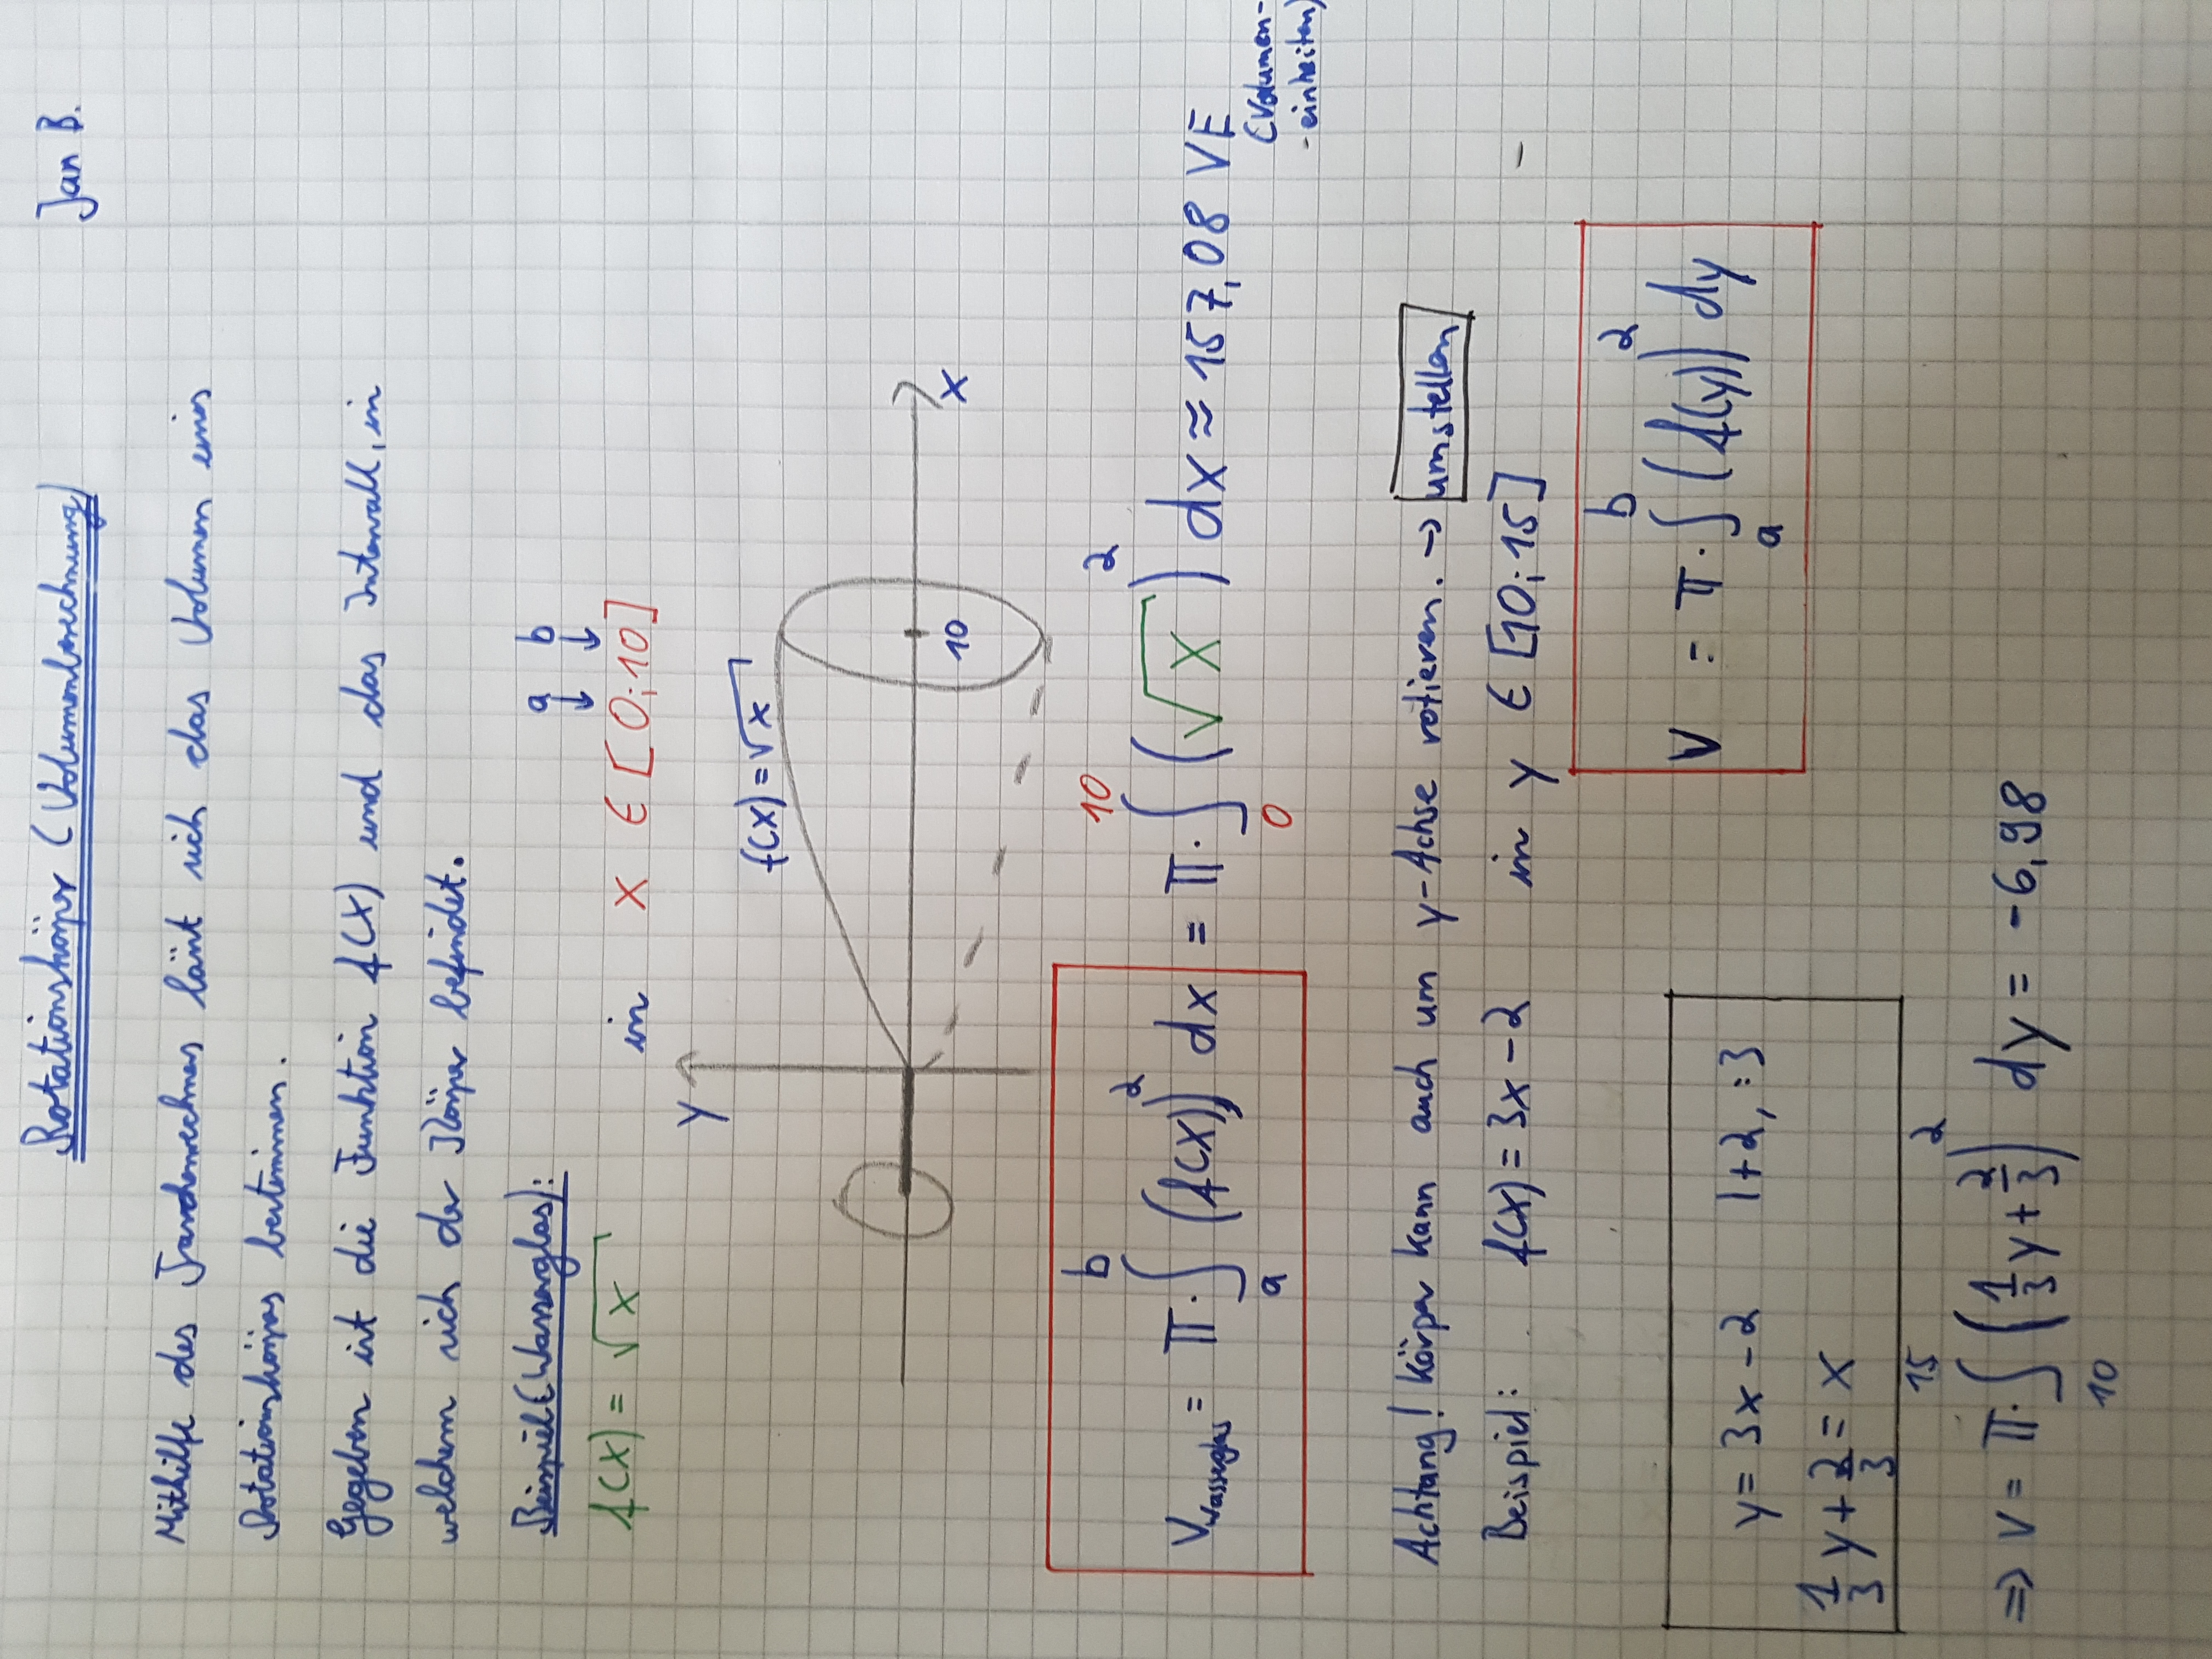 Rotationskörper (Volumenberechnung) Jan B.
Mithilfe des Taschenrechners läßt sich das Volumen eines
Rotationskörpers bestimmen.
Gegeben ist die Funktion f(x) und das Intervall, in
welchem sich der Körper befindet.
Beispiel (Wasserglas): a b
↓ ↓
f(x) = √x in x ∈ [0;10]
y
f(x) = √x
10
x
V_Wasserglas = π · ∫_a^b (f(x))² dx = π · ∫_0^10 (√x)² dx ≈ 157,08 VE
(Volumen-
-einheiten)
Achtung! Körper kann auch um y-Achse rotieren. → umstellen
Beispiel: f(x) = 3x - 2 in y ∈ [10;15]
V = π · ∫_a^b (f(y))² dy
y = 3x - 2 | +2, :3
1/3 y + 2/3 = x
⇒ V = π · ∫_10^15 (1/3 y + 2/3)² dy = -6,98